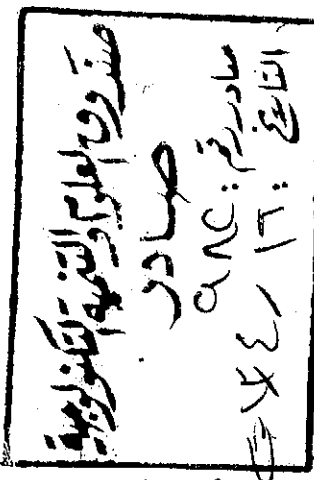 صندوق العلوم والتنمية التكنولوجية
صادر
صادر رقم : ٩٨٢
التاريخ : ١٦ / ٤ /